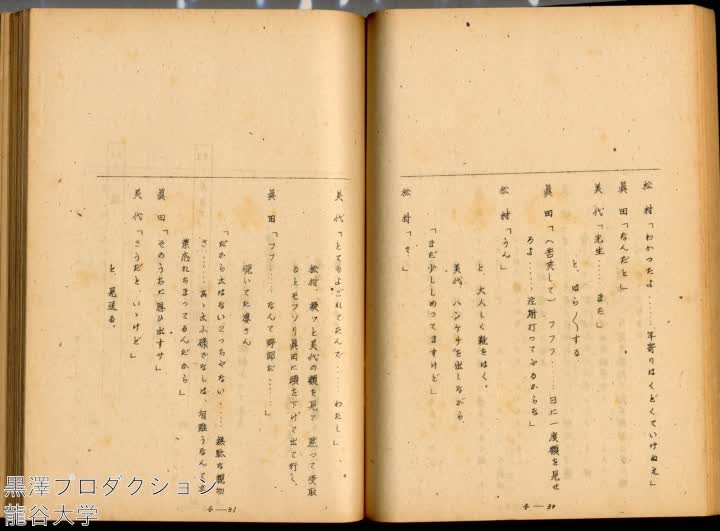 松村「わかつたよ……年寄りはくどくていけねえ」
眞田「なんだと」
美代「先生……また」
と、はら〳〵する
眞田「(苦笑して)フフフ……日に一度顔を見せ
ろよ……注射打つてやるからな」
松村「うん」
と、大人しく靴をはく。
美代、ハンケチを出しながら
「まだ少ししめつてますけど」
松村「
4—30
美代「とてもよごれてたんで……わたし」
松村、美代の顔を見て 黙つて受取
るとモツソリ眞田に頭を下げて出て行く。
眞田「フフ……なんて野郎だ……」
覗いてた婆さん
「だから
さ……あゝ云ふ孫でなしは、有難うなんて言
葉忘れちまつてるんだから」
眞田「そのうちに思ひ出すサ」
美代「さうだと、いゝけど」
と、見送る。
4—31
黒澤プロダクション
龍谷大学